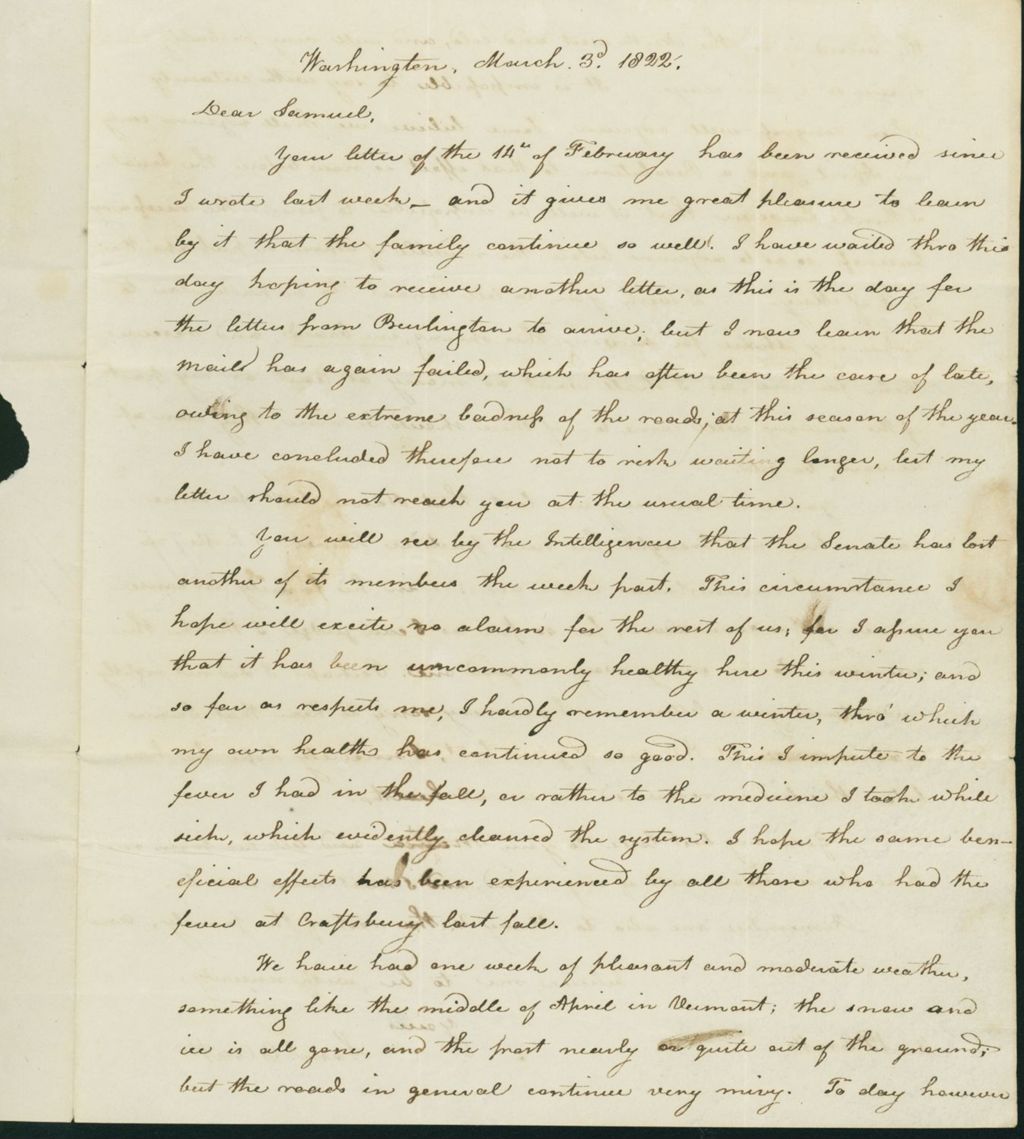 Washington, March 3d. 1822.
Dear Samuel,
Your letter of the 14th of February has been received since
I wrote last week, – and it gives me great pleasure to learn
by it that the family continue so well. I have waited thro this
day hoping to receive another letter, as this is the day for
the letters from Burlington to arrive; but I now learn that the
mail has again failed, which has often been the case of late,
owing to the extreme badness of the roads, at this season of the year.
I have concluded therefore not to risk waiting longer, lest my
letter should not reach you at the usual time.
You will see by the Intelligencer that the Senate has lost
another of its members the week past. This circumstance I
hope will excite no alarm for the rest of us; for I assure you
that it has been uncommonly healthy here this winter; and
so far as respects me, I hardly remember a winter, thro' which
my own health has continued so good. This I impute to the
fever I had in the fall, or rather to the medicine I took while
sick, which evidently cleansed the system. I hope the same ben-
eficial effects has been experienced by all those who had the
fever at Craftsbury last fall.
We have had one week of pleasant and moderate weather,
something like the middle of April in Vermont; the snow and
ice is all gone, and the frost nearly or quite out of the ground;
but the roads in general continue very miry. To day however